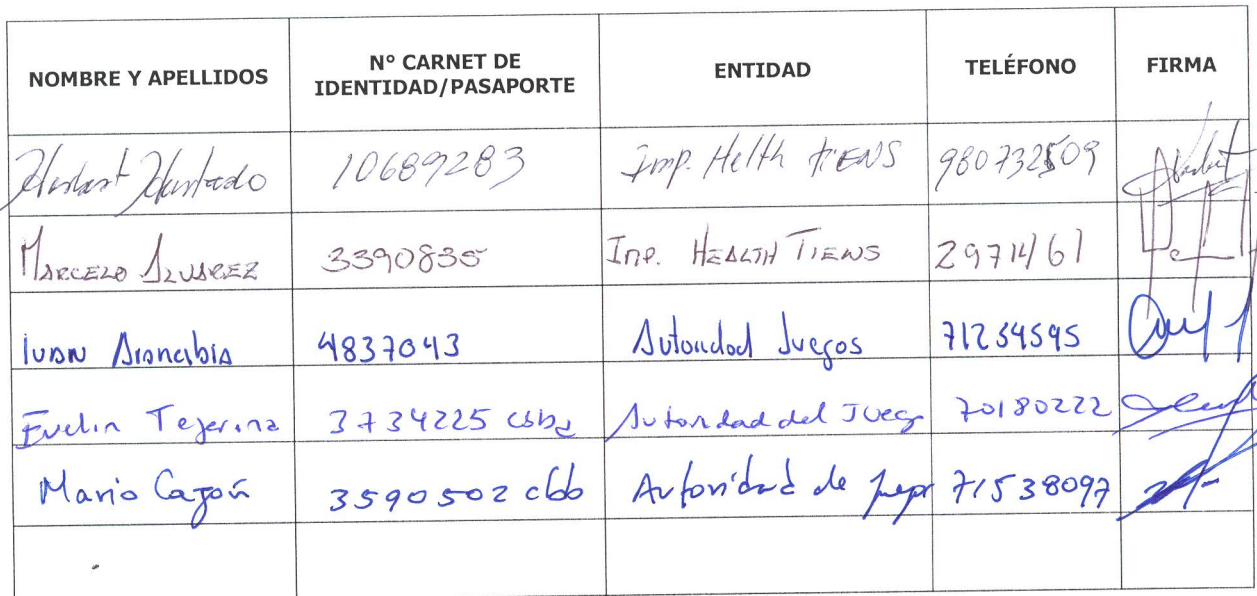 NOMBRE Y APELLIDOS Nº CARNET DE IDENTIDAD/PASAPORTE ENTIDAD TELÉFONO FIRMA
Hurtado 10689283 Imp. Helth TIENS 980732509
MARCELO ALVAREZ 3390835 Inp. HEALTH TIENS 29714161
IVAN Arancibia 4837043 Autoridad Juegos 71254595
Evelin Tejerina 3734225 cbba Autoridad del Juego 70180222
Mario Cazón 3590502 cbb Autoridad de 71538097